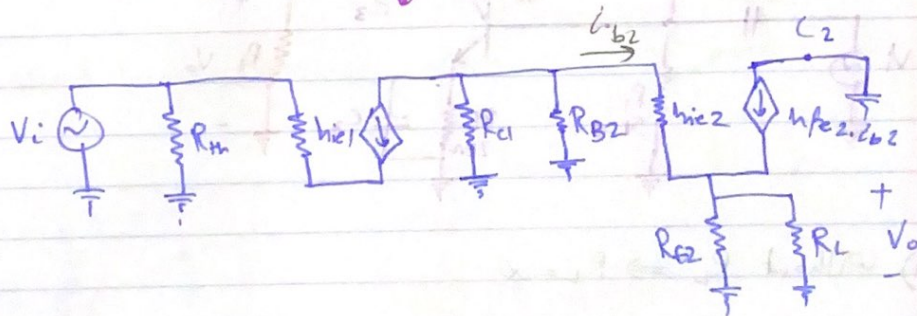 i_b2
C2
Vi
Rth
hie1
RC1
RB2
hie2
hfe2.ib2
+
RE2
RL
Vo
-